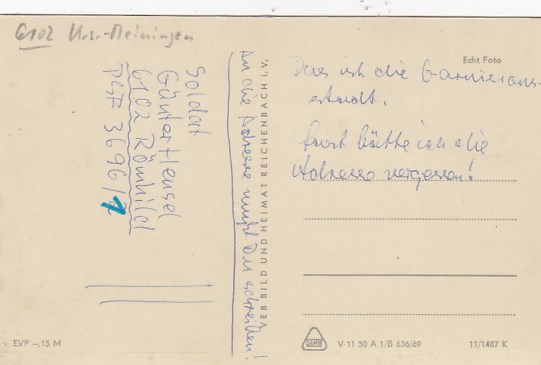 6102 Krs. Meiningen
Soldat
Günter Hensel
6102 Römhild
PSF 3696/7
An die Adresse mußt Du schreiben!
VEB BILD UND HEIMAT REICHENBACH I. V.
Echt Foto
Das ist die Garnisions-
stadt.
Fast hätte ich die
Adresse vergessen!
EVP –,15 M
V-11 50 A 1/B 636/69
11/1487 K